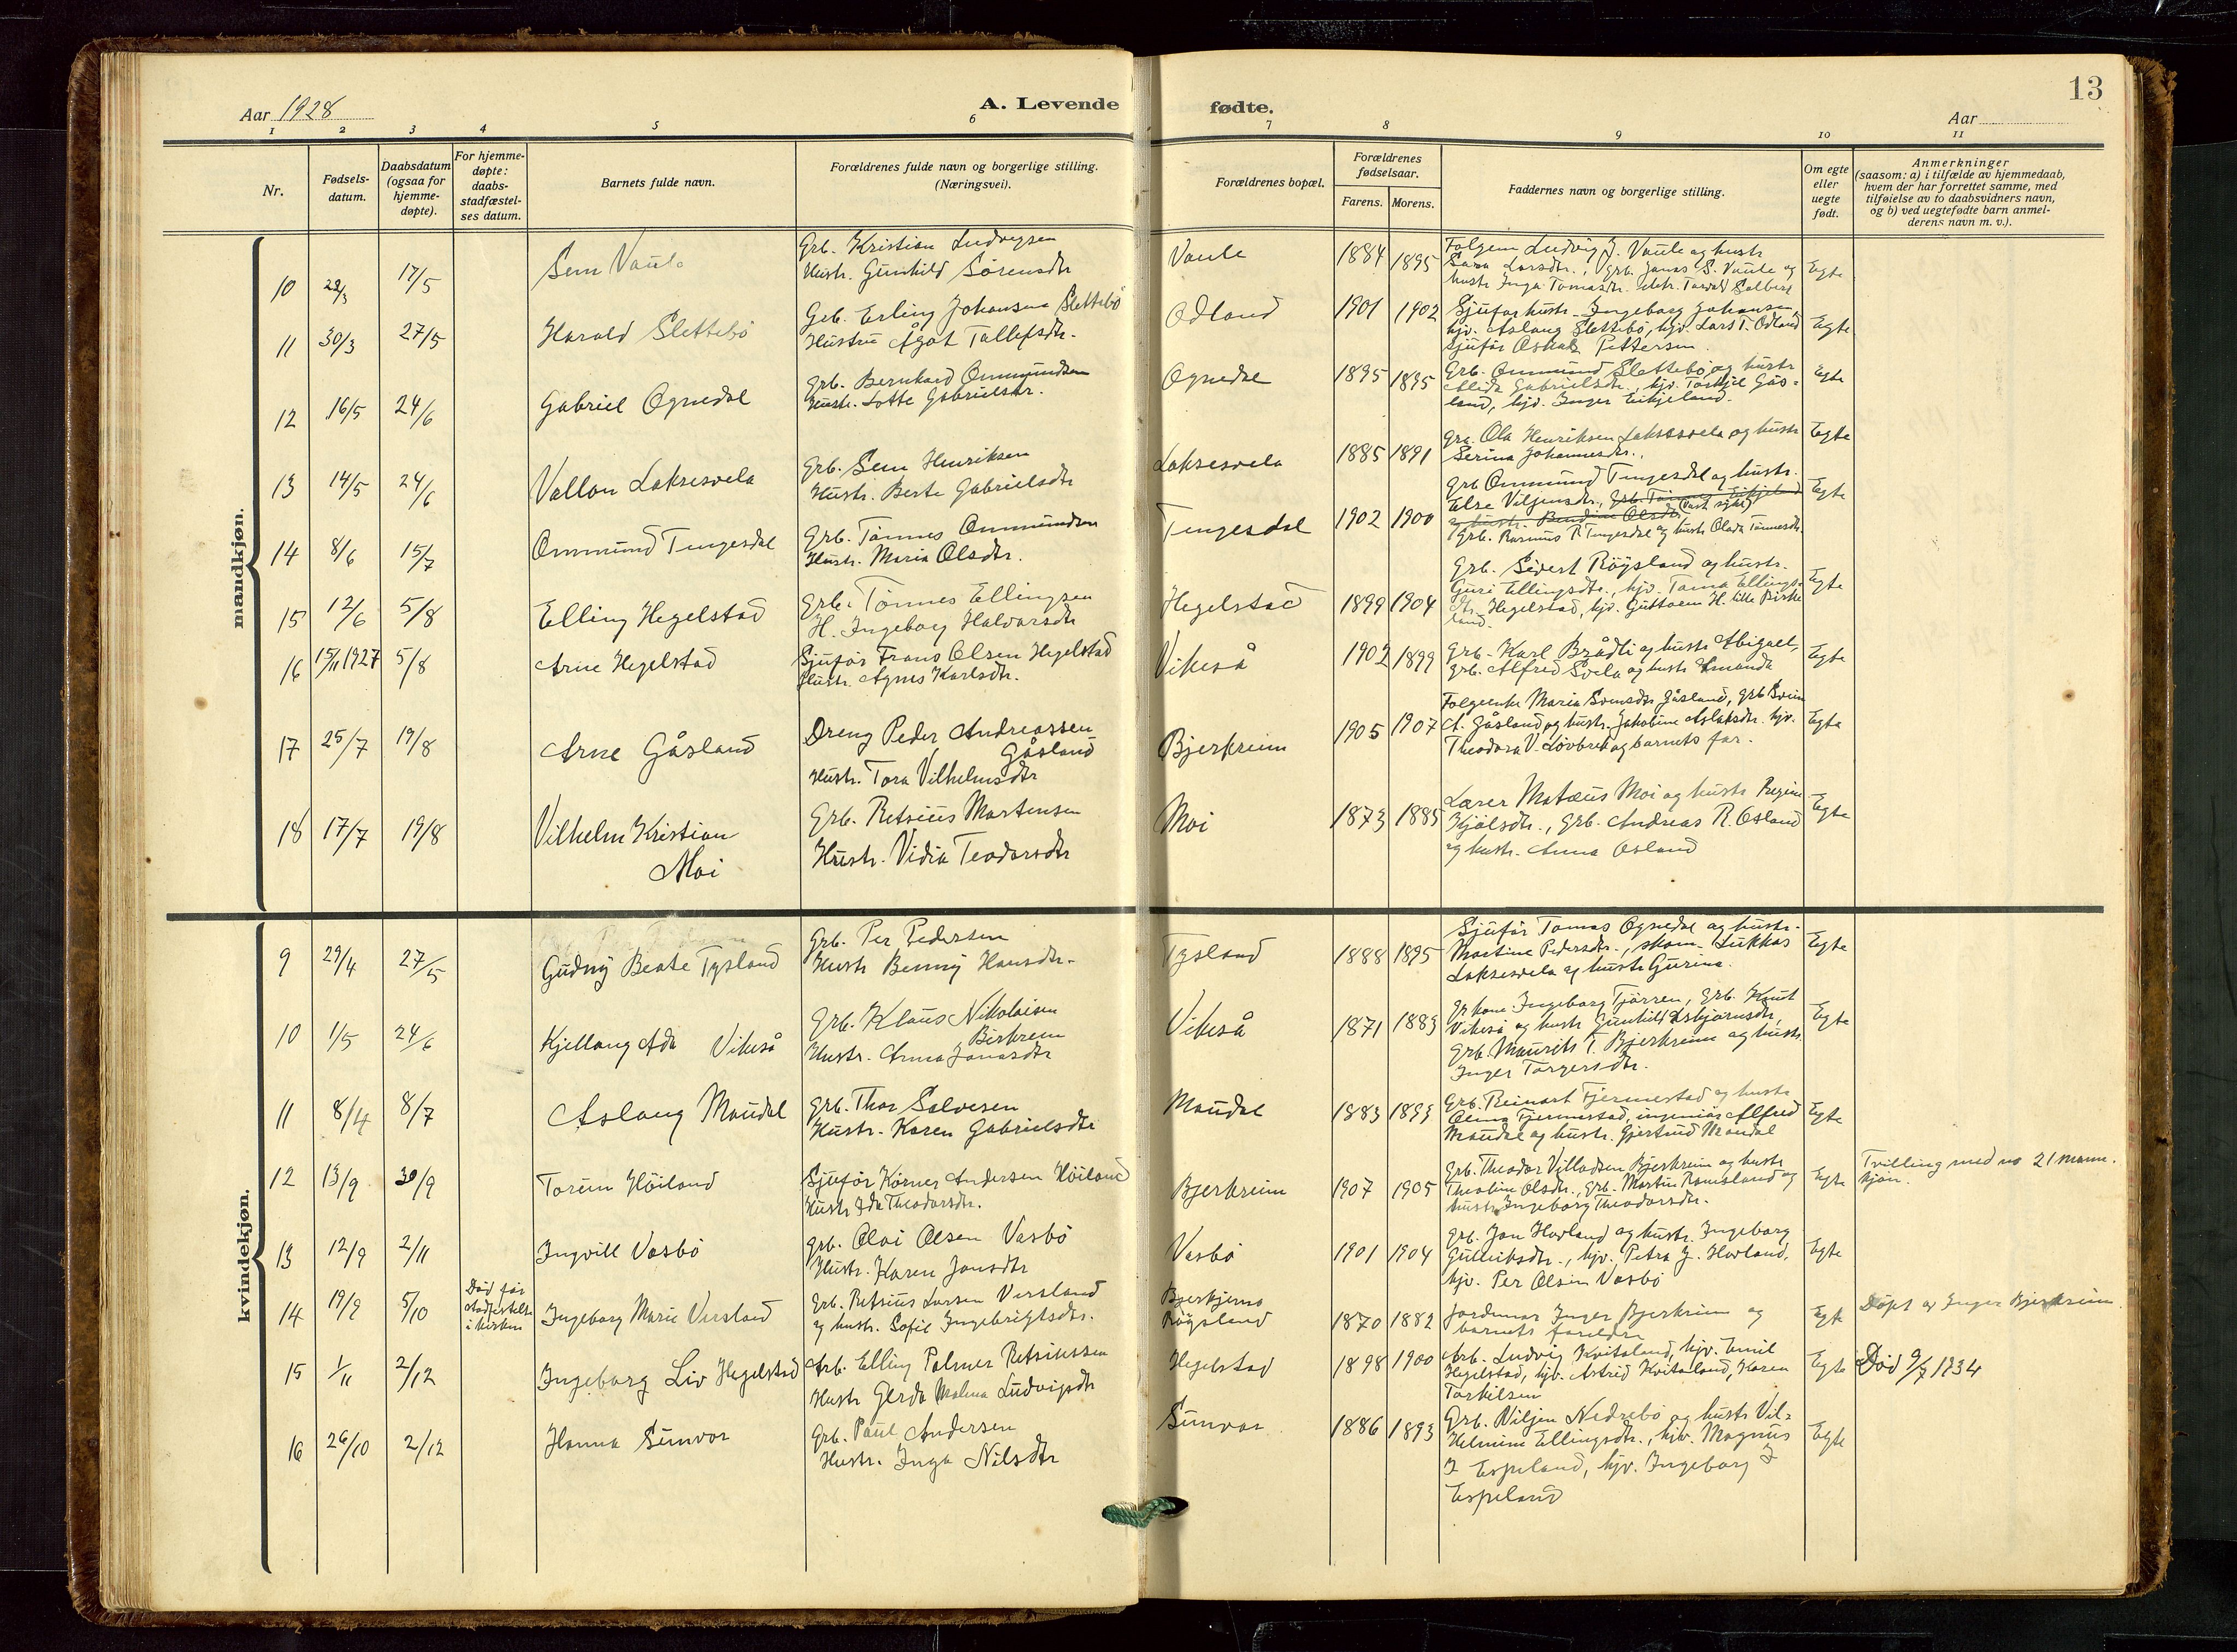 Aar 1928
A. Levende
fødte.
13
Aar
1 2 3 4 5 6 7 8 9 10 11
Nr.
Fødsels-
datum.
Daabsdatum
(ogsaa for
hjemme-
døpte).
For hjemme-
døpte:
daabs-
stadfæstel-
ses datum.
Barnets fulde navn.
Forældrenes fulde navn og borgerlige stilling.
(Næringsvei).
Forældrenes bopæl.
Forældrenes
fødselsaar.
Farens. Morens.
Faddernes navn og borgerlige stilling.
Om egte
eller
uegte
født.
Anmerkninger
(saasom: a) i tilfælde av hjemmedaab,
hvem der har forrettet samme, med
tilføielse av to daabsvidners navn,
og b) ved uegtefødte barn anmel-
derens navn m. v.).
mandkjøn.
10 17/5 Sem Vaule
Grb. Kristian Ludvigsen
Hustr. Gunhild Sørensdtr
Vaule 1884 1895
Folgem Ludvig J. Vaule og hustr
Sara Larsdtr., grb. Jonas S. Vaule og
hustr Inga Tomasdtr.
Egte
11 30/3 27/5 Harald Slettebö
Grb. Erling Johansen Slettebö
Hustru Ågot Tallefsdtr.
Odland 1901 1902
Sjuforhustr. Ingeborg Johansen,
hjv. Aslaug Slettebö, hjv. Lars T. Odland
sjuför Oskar Pettersen.
Egte
12 16/5 24/6 Gabriel Ognedal
Grb. Bernhard Ommundsen
Hustr. Lotte Gabrielsdtr.
Ognedal 1895 1895
Grb. Ommund Slettebö og hustr
Alida Gabrielsdtr., hjv. Torkjel Gås=
land, hjv. Inger Eikjeland.
Egte
13 14/5 24/6 Vallon Laksesvela
Grb. Sem Henriksen
Hustr. Berte Gabrielsdtr
Laksesvela 1885 1891
Grb. Ola Henriksen Laksesvela og hustr
Serina Johannesdtr.,
Egte
14 8/6 15/7 Ommund Tengesdal
Grb. Tönnes Ommundsen
Hustr. Maria Olsdtr.
Tengesdal 1902 1900
Grb Ommund Tengesdal og hustr.
Else Viljemsdtr., Grb. Tönnes Eikjeland
og hustr. Bendine Olsdtr (vart sjuk)
Grb. Rasmus P. Tengesdal og hustr Olada Tönnesdtr.
Egte
15 12/6 5/8 Elling Hegelstad
Grb. Tönnes Ellingsen
H. Ingeborg Halvorsdtr
Hegelstad 1899 1904
Grb. Sivert Röysland og hustr.
Guri Ellingsdtr., hjv. Tama Ellings=
dtr. Hegelstad, hjv. Guttorm H. litle Birke
land.
Egte
16 15/11 1927 5/8 Arne Hegelstad
Sjuför Frans Olsen Hegelstad
Hustr. Agnes Karlsdtr.
Vikeså 1902 1899
Grb. Karl Brådli og hustr Abigael,
grb. Alfred Svela og hustr Amanda
Egte
17 25/7 19/8 Arne Gåsland
Dreng Peder Andreassen
Gåsland
Hustr. Tora Vilhelmsdtr
Bjerkreim 1905 1907
Folgeenke Maria Svensdtr Gåsland, grb Svein
A. Gåsland og hustr. Jakobine Aslaksdtr. hjv.
Theodora V. Lövbrek og barnets far.
Egte
18 17/7 19/8 Vilhelm Kristian
Moi
Grb. Retsius Martensen
Hustr. Vidia Teodorsdtr
Moi 1873 1885
Lærer Matæus Moi og hustr Regine
Kjölsdtr., Grb. Andreas R. Osland
og hustr. Anna Osland
Egte
kvindekjøn.
9 29/4 27/5 Gudny Beate Tysland
Grb. Per Pedersen
Hustr Benny Hansdtr.
Tysland 1888 1895
Sjuför Tomas Ognedal og hustr.
Martine Pedersdtr., skom. Lukkas
Laksesvela og hustr Gurina.
Egte
10 1/5 24/6 Kjellaug Ada Vikeså
Grb. Klaus Nikolaisen
Birkrem
Hustr. Anna Jonasdtr
Vikeså 1871 1883
Grkone Ingeborg Tjörren, Grb. Knut
Vikeså og hustr Gunhild Asbjörnsdtr,
Grb. Maurits T. Bjerkreim og hustr.
Inger Torgersdtr.
Egte
11 8/4 8/7 Aslaug Maudal
Grb. Thor Salvesen
Hustr. Karen Gabrielsdtr
Maudal 1883 1893
Grb. Reinert Fjermestad og hustr
Olina Fjermestad, ingeniör Alfred
Maudal og hustr. Gjertrud Maudal
Egte
12 13/9 30/9 Torun Höiland
Sjuför Körner Andersen Höiland
Hustr Ida Theodorsdtr.
Bjerkreim 1907 1905
Grb. Theodor Villadsen Bjerkreim og hustr
Theoline Olsdtr., Grb. Martin Ramsland og
hustr Ingeborg Theodorsdtr.
Egte
Tvilling med no 21 mann.
kjön.
13 12/9 2/11 Ingvill Vasbö
Grb. Olai Olsen Vasbö
Hustr. Karen Jonsdtr
Vasbö 1901 1904
Grb. Jon Hovland og hustr. Ingeborg
Gulleiksdtr., hjv. Petra J. Hovland,
hjv. Per Olsen Vasbö
Egte
14 19/9 5/10
Död för
stadfestelse
i kirken
Ingeborg Marie Versland
Grb. Retsius Larsen Versland
og hustr. Sofie Ingebrigtsdtr.
Röysland 1870 1882
Jordmor Inger Bjerkreim og
barnets foreldre
Egte
Döpt av Inger Bjerkreim.
15 1/11 2/12 Ingeborg Liv Hegelstad
Arb. Elling Palmer Retsiussen
Hustr Gerda Malena Ludvigsdtr
Hegelstad 1898 1900
Arb. Ludvig Kvitaland, hjv. Emil
Hegelstad, hjv. Astrid Kvitaland, Karen
Torkilsen
Egte
Död 9/7 1934
16 26/10 2/12 Hanna Sunvor
Grb. Paul Andersen
Hustr. Inga Nilsdtr
Sunvor 1886 1893
Grb. Viljen Nedrebö og hustr Vil=
helmine Ellingsdtr., hjv. Magnus
I Espeland, hjv. Ingeborg I
Espeland
Egte